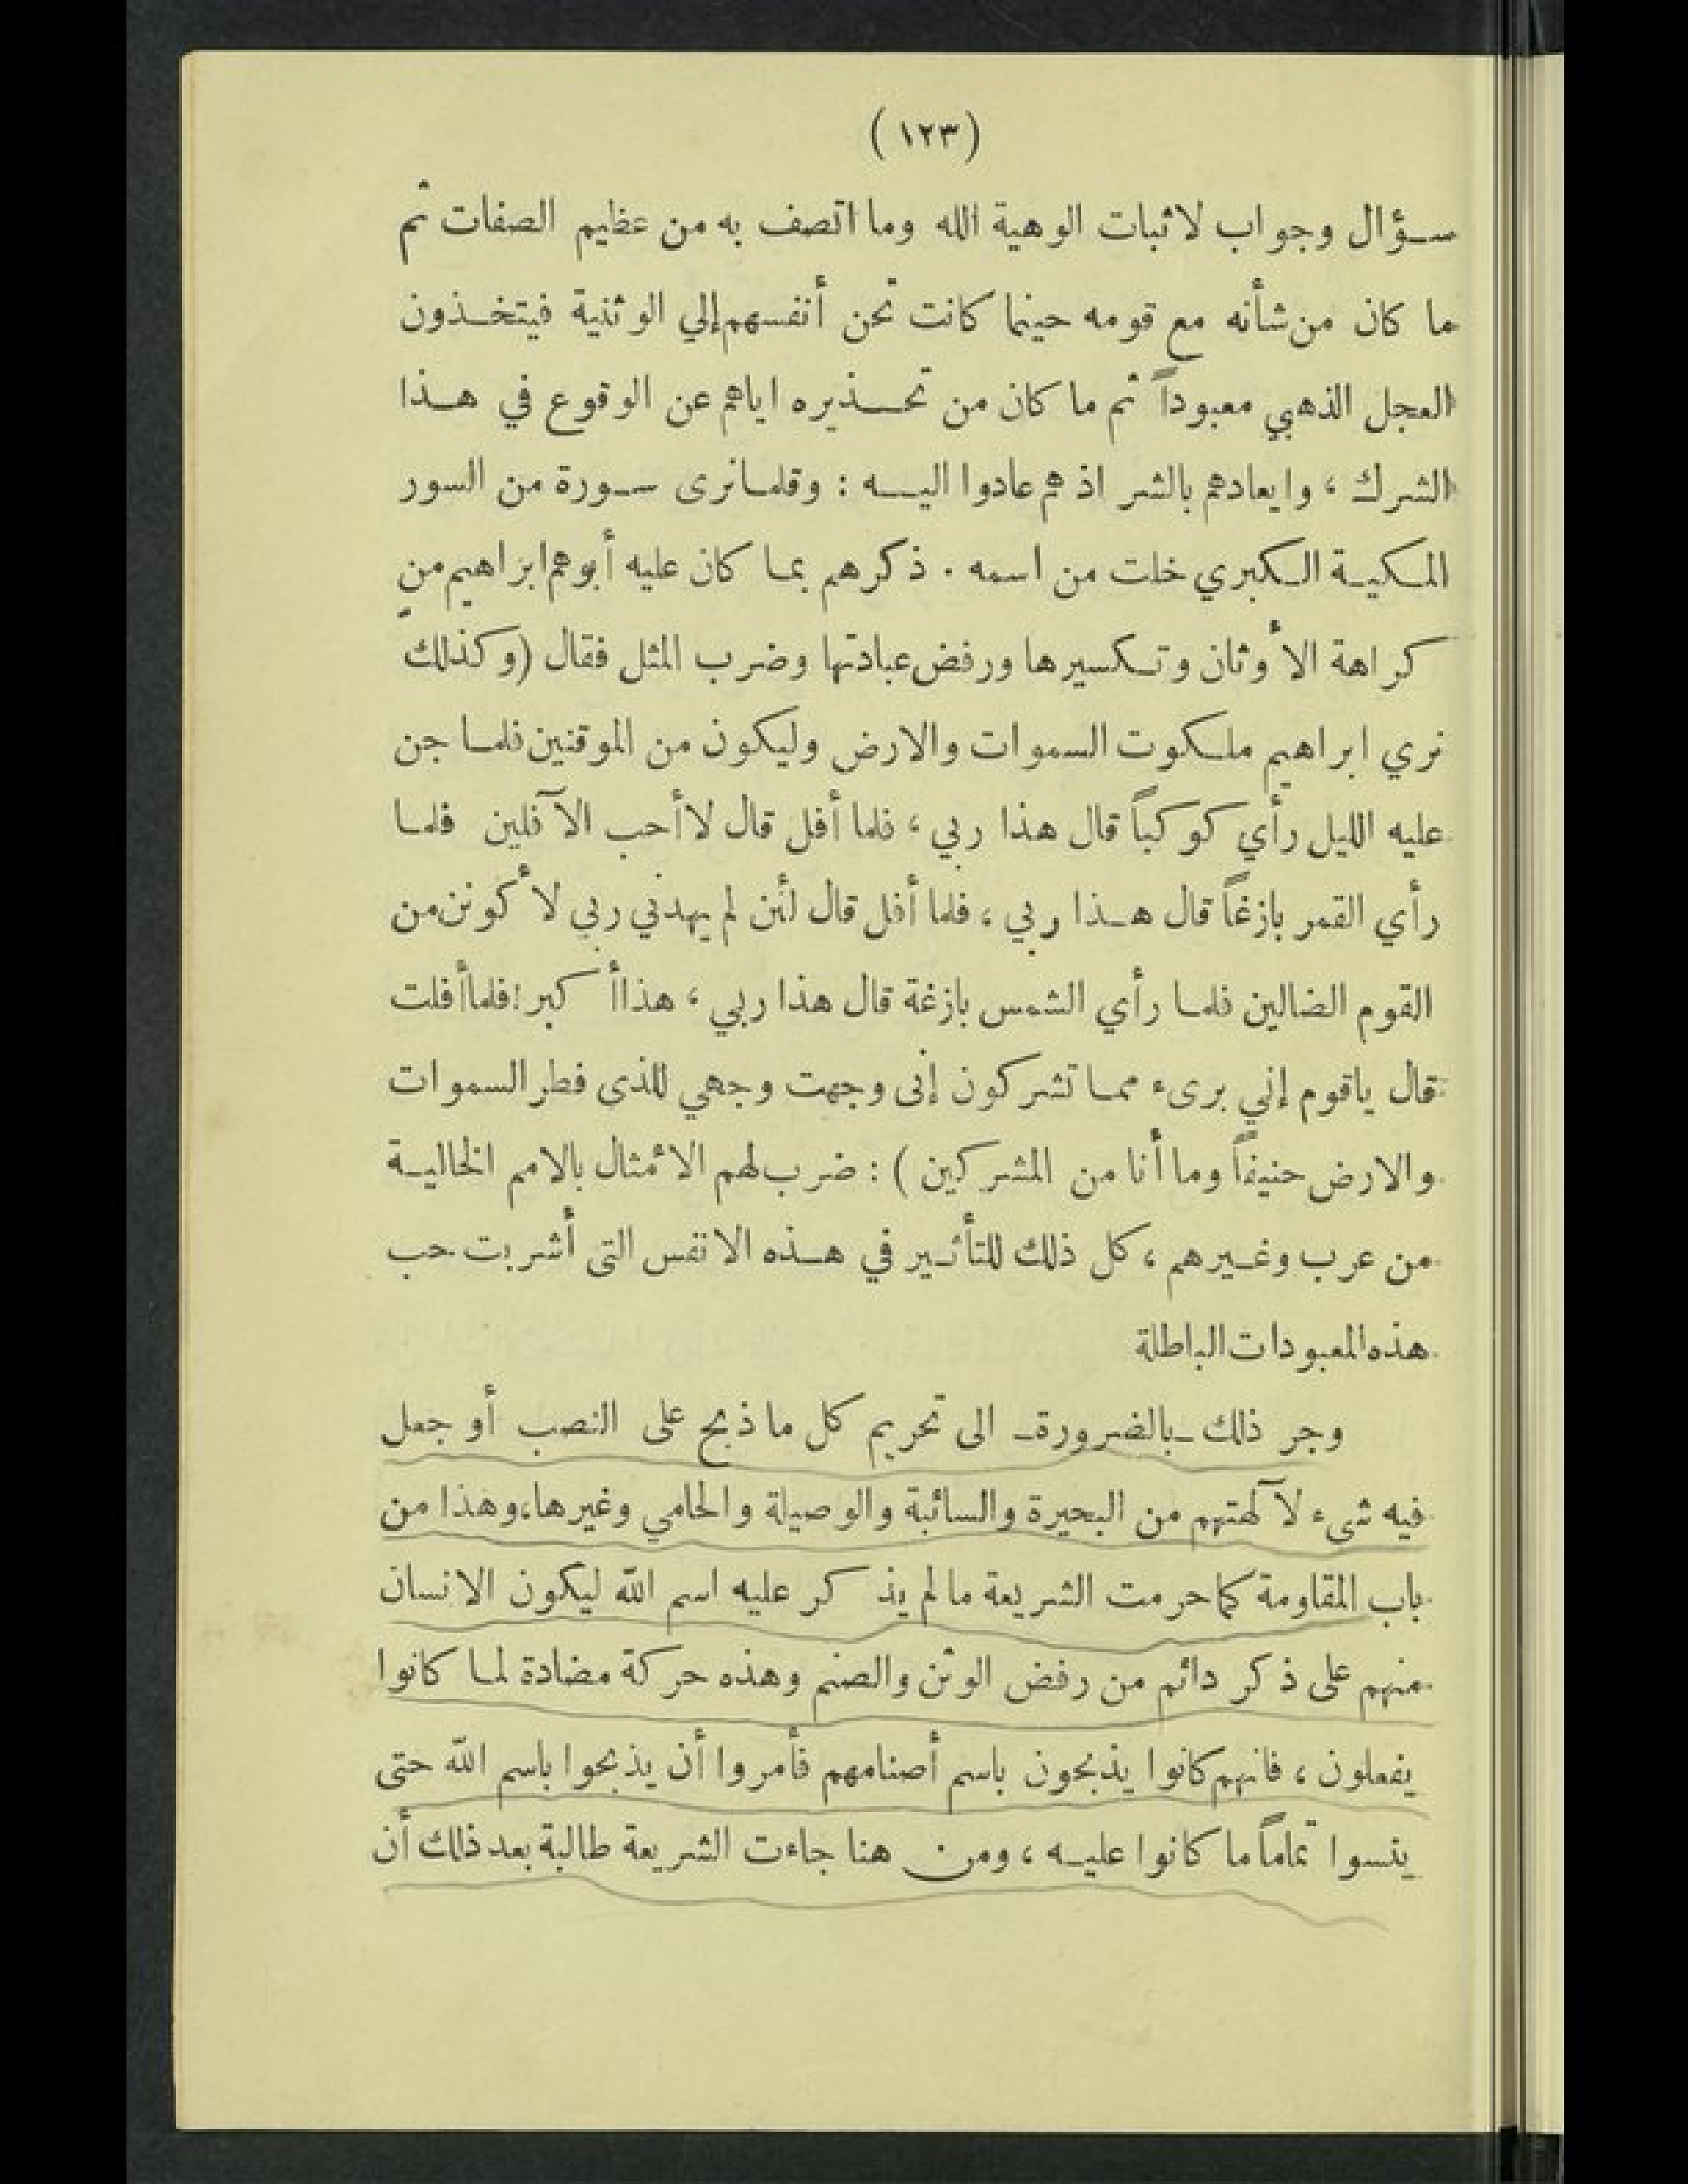 (١٢٣)
سؤال وجواب لاثبات الوهية الله وما اتصف به من عظيم الصفات ثم
ما كان من شأنه مع قومه حينما كانت تحن أنفسهم إلي الوثنية فيتخذون
العجل الذهبي معبوداً ثم ما كان من تحذيره اياهم عن الوقوع في هذا
الشرك ، وايعادهم بالشر اذ هم عادوا اليه : وقلما نرى سورة من السور
المكية الكبري خلت من اسمه . ذكرهم بما كان عليه أبوهم ابراهيم من
كراهة الأوثان وتكسيرها ورفض عبادتها وضرب المثل فقال (وكذلك
نري ابراهيم ملكوت السموات والارض وليكون من الموقنين فلما جن
عليه الليل رأي كوكباً قال هذا ربي ، فلما أفل قال لا أحب الآفلين فلما
رأي القمر بازغاً قال هذا ربي ، فلما أفل قال لئن لم يهدني ربي لأكونن من
القوم الضالين فلما رأي الشمس بازغة قال هذا ربي ، هذا أكبر ! فلما أفلت
قال ياقوم إني برىء مما تشركون إنى وجهت وجهي للذى فطر السموات
والارض حنيفاً وما أنا من المشركين ) : ضرب لهم الأمثال بالامم الخالية
من عرب وغيرهم ، كل ذلك للتأثير في هذه الانفس التى أشربت حب
هذه المعبودات الباطلة
وجر ذلك ـ بالضرورة ـ الى تحريم كل ما ذبح على النصب أو جعل
فيه شىء لآلهتهم من البحيرة والسائبة والوصيلة والحامي وغيرها، وهذا من
باب المقاومة كما حرمت الشريعة ما لم يذكر عليه اسم الله ليكون الانسان
منهم على ذكر دائم من رفض الوثن والصنم وهذه حركة مضادة لما كانوا
يفعلون ، فانهم كانوا يذبحون باسم أصنامهم فأمروا أن يذبحوا باسم الله حتى
ينسوا تماماً ما كانوا عليه ، ومن هنا جاءت الشريعة طالبة بعد ذلك أن